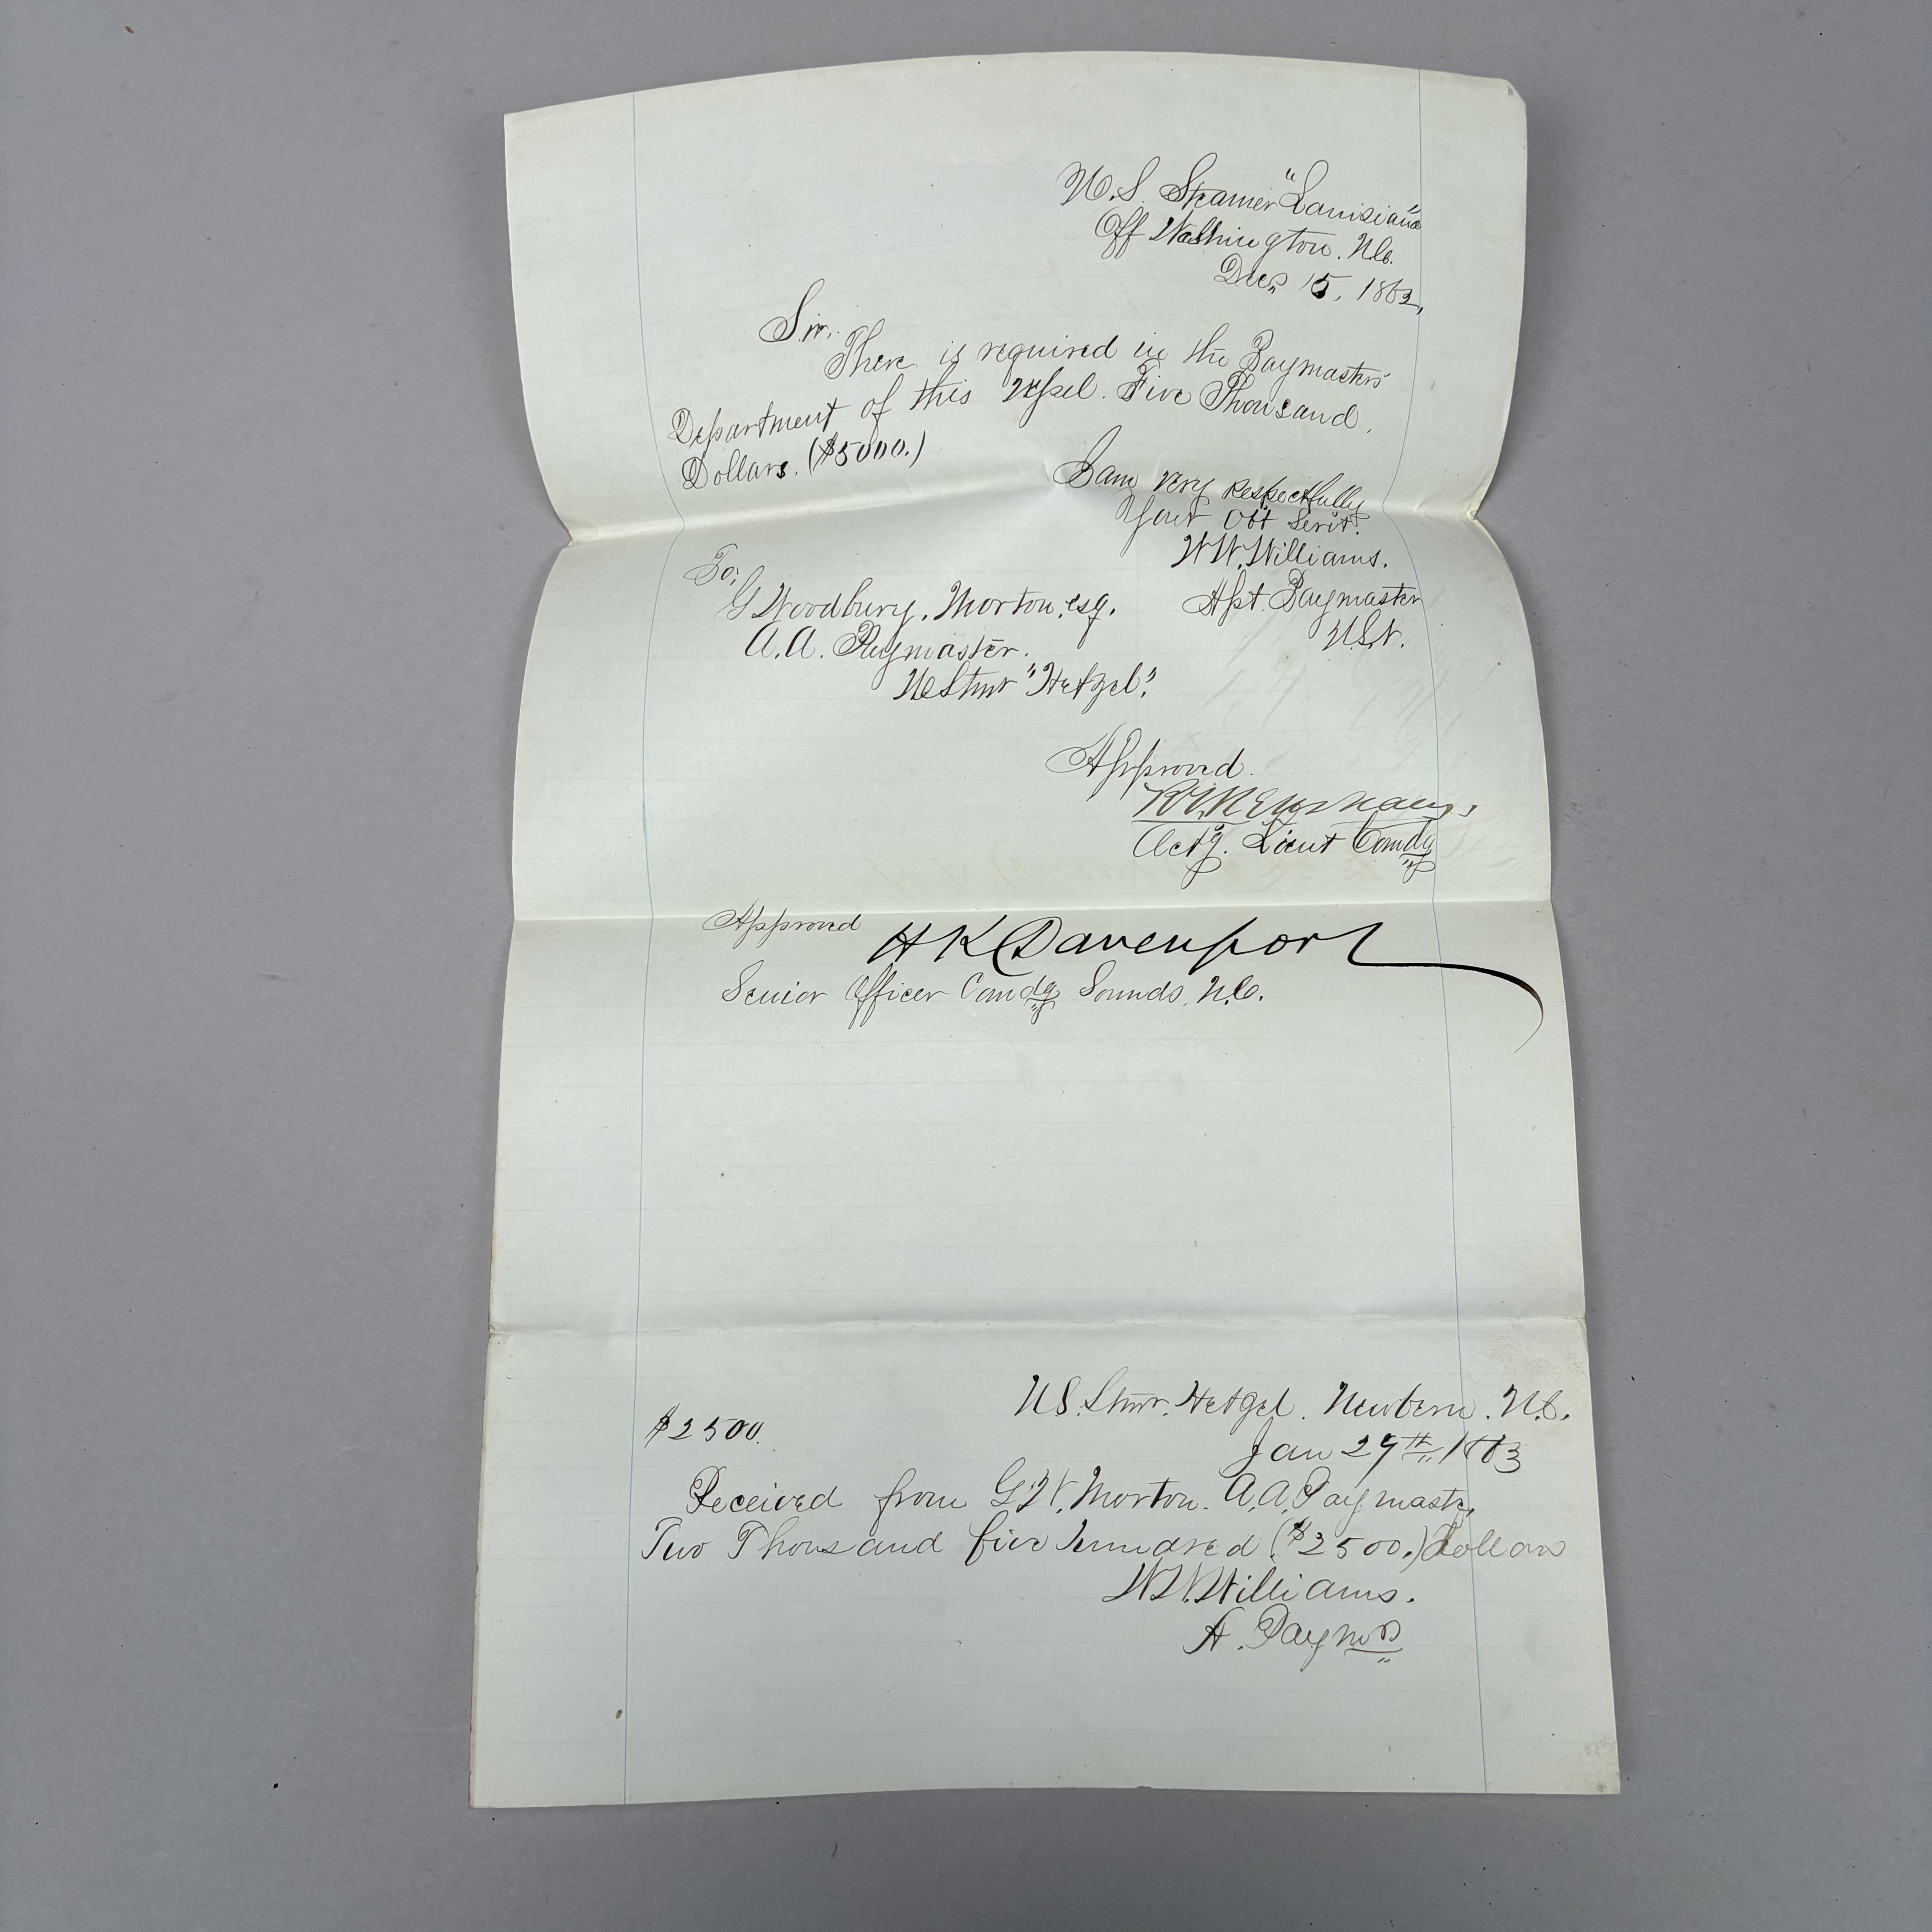 U.S. Steamer "Louisiana"
Off Washington. N.C.
Dec. 15, 1862,
Sir,
There is required in the Paymasters'
Department of this Vessel. Five Thousand
Dollars. ($5000.)
I am very respectfully
Your Obt Servt.
W W. Williams.
Asst. Paymaster
U.S.N.
To:
G Woodbury. Morton, esq.
A.A. Paymaster.
US Stmr "Hetzel."
Approved.
Actg. Lieut Comdg
Approved H K Davenport
Senior Officer Comdg Sounds, N.C.
US. Stmr. Hetzel. Newbern. N.C.
$2500.
Jan 29th 1863
Received from G W. Morton. A.A. Paymastr,
Two Thousand five hundred ($2500.) dollars
W W. Williams.
A. Paymr